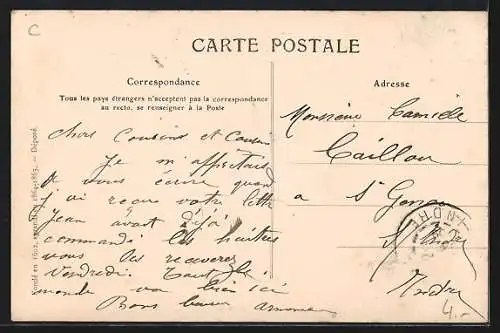 C
CARTE POSTALE
Correspondance
Tous les pays étrangers n'acceptent pas la correspondance
au recto, se renseigner à la Poste
Chers Cousins et Cousine
Je m'apprêtais
à vous écrire quand
j'ai reçu votre lettre
Jean avait déjà
commandé les huîtres
vous les recevrez
Vendredi. Tout le
monde va bien ici
Bons baisers
Adresse
Monsieur Camille
Caillou
à St Genou
Indre
INDRE
4.-